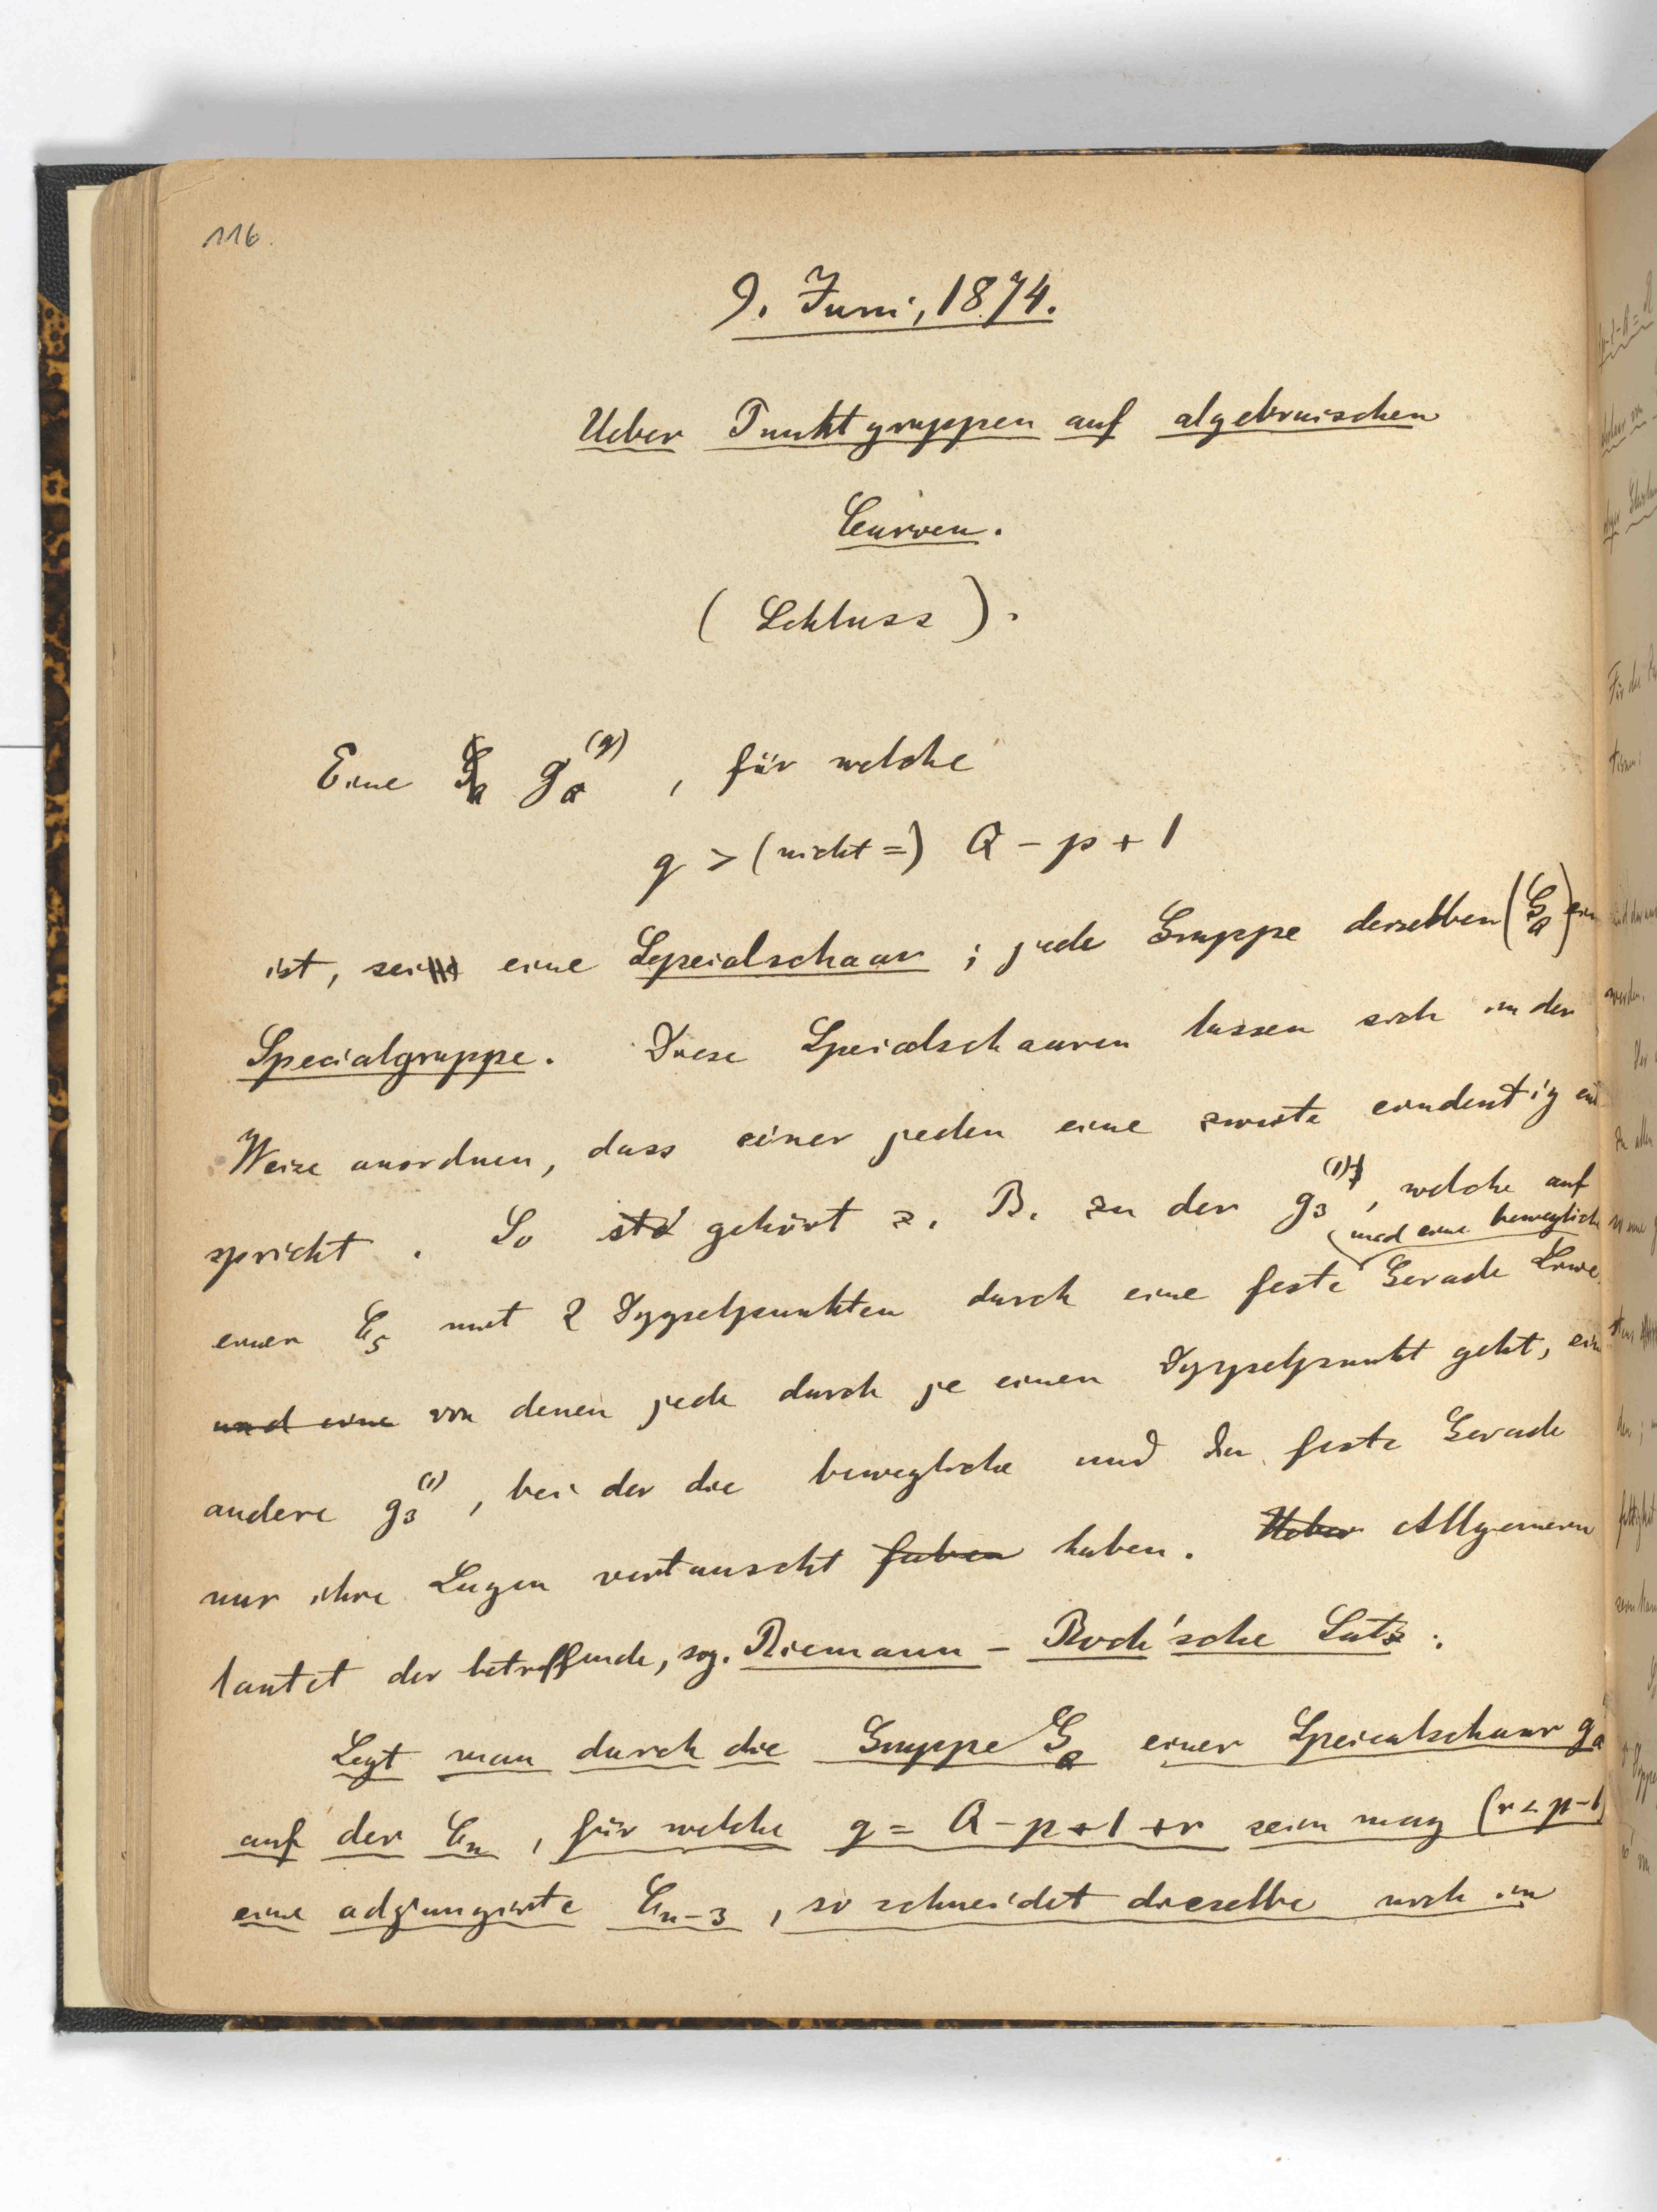 116.
9. Juni, 1874.
Ueber Punktgruppen auf algebraischen
Curven.
(Schluss).
Eine g_Q^(q), für welche
q > (nicht =) Q - p + 1
ist, sei eine Specialschaar; jede Gruppe derselben (G_Q) eine
Specialgruppe. Diese Specialschaaren lassen sich in der
Weise anordnen, dass einer jeden eine zweite eindeutig ent
spricht. So gehört z. B. zu der g_3^(1), welche auf
und eine bewegliche
einer C_5 mit 2 Doppelpunkten durch eine feste Gerade
und eine von denen jede durch je einen Doppelpunkt geht, eine
andere g_3^(1), bei der die bewegliche und die feste Gerade
nur ihre Lagen vertauscht haben haben. Ueber Allgemein
lautet der betreffende, sog. Riemann-Roch'sche Satz:
Legt man durch die Gruppe G_Q einer Specialschaar g_Q
auf der C_n, für welche q = Q - p + 1 + r sein mag (r < p-1)
eine adjungirte C_n-3, so schneidet dieselbe noch in